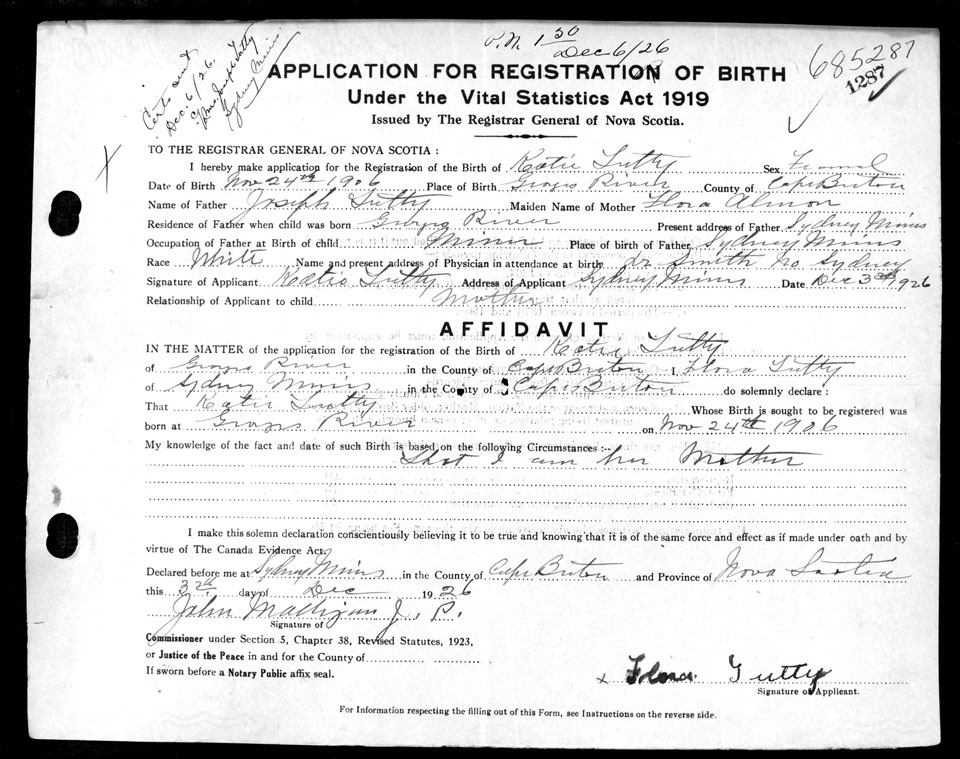 P.N. 1 50
Dec 6/26
685287
1287
Certs sent
Dec. 6/26.
Joseph Tutty
Sydney Mines
APPLICATION FOR REGISTRATION OF BIRTH
Under the Vital Statistics Act 1919
Issued by The Registrar General of Nova Scotia.
TO THE REGISTRAR GENERAL OF NOVA SCOTIA :
I hereby make application for the Registration of the Birth of Katie Tutty Sex Femal
Date of Birth Nov 24th 1906 Place of Birth Groges River County of Cape Briton
Name of Father Joseph Tutty Maiden Name of Mother Flora Almon
Residence of Father when child was born Groges River Present address of Father Sydney Mines
Occupation of Father at Birth of child Miner Place of birth of Father Sydney Mines
Race White Name and present address of Physician in attendance at birth dr Smith no Sydney
Signature of Applicant Katie Tutty Address of Applicant Sydney Mines Date Dec 3rd 1926
Relationship of Applicant to child Mother
AFFIDAVIT
IN THE MATTER of the application for the registration of the Birth of Katie Tutty
of Groges River in the County of Cape Briton I, Flora Tutty
of Sydney Mines in the County of Cape Briton do solemnly declare :
That Katie Tutty Whose Birth is sought to be registered was
born at Groges River on Nov 24th 1906
My knowledge of the fact and date of such Birth is based on the following Circumstances :-
That I am her Mother
I make this solemn declaration conscientiously believing it to be true and knowing that it is of the same force and effect as if made under oath and by
virtue of The Canada Evidence Act.
Declared before me at Sydney Mines in the County of Cape Briton and Province of Nova Scotia
this 3rd day of Dec 1926
John Malligan J. P.
Signature of
Commissioner under Section 5, Chapter 38, Revised Statutes, 1923,
or Justice of the Peace in and for the County of
If sworn before a Notary Public affix seal.
x Flora Tutty
Signature of Applicant.
For Information respecting the filling out of this Form, see Instructions on the reverse side.